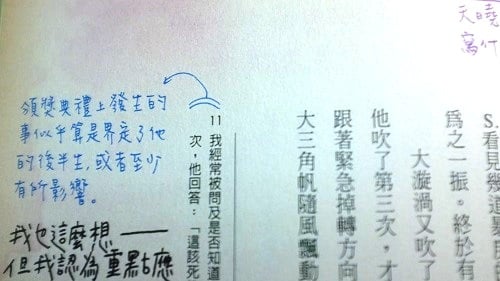 天曉
S. 看見幾道
爲之一振。終於有
大漩渦又吹了
他吹了第三次，才
跟著緊急掉轉方向
大三角帆隨風飄動
11 我經常被問及是否知道
次，他回答：「這該死
頒獎典禮上發生的
事似乎算是界定了他
的後半生,或者至少
有所影響。
我也這麼想——
但我認為重點應